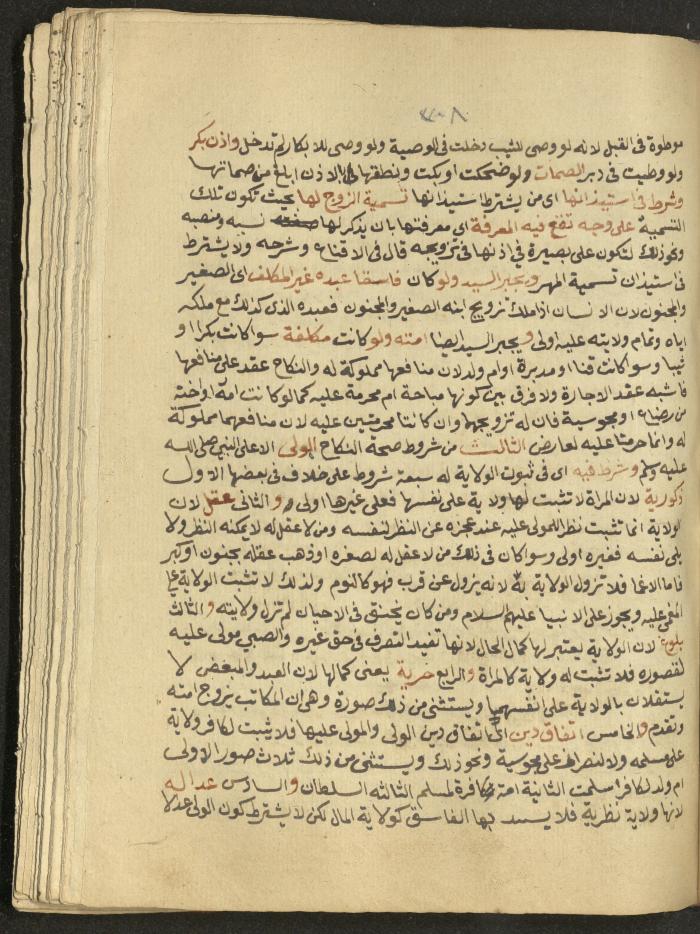 موطوءة فى القبل لانه لو وصى للثيب دخلت فى الوصية ولو وصى للابكار لم تدخل واذن بكر
ولو وطيت فى دبر الصمات ولو ضحكت او بكت ونطقها بالاذن ابلغ من صماتها
وشرط فى استيذانها اى من يشترط استيذانها تسمية الزوج لها بحيث تكون تلك
التسمية على وجه تقع فيه المعرفة اى معرفتها بان يذكر لها نسبه ومنصبه
ونحو ذلك لتكون على بصيرة فى اذنها فى تزويجه قال فى الاقناع وشرحه ولا يشترط
فى استيذان تسمية المهر ويجبر السيد ولو كان فاسقا عبده غير المكلف اى الصغير
والمجنون لان الانسان اذا ملك تزويج ابنه الصغير والمجنون فعبده الذى كذلك مع ملكه
اياه وتمام ولايته عليه اولى ويجبر السيد ايضا امته ولو كانت مكلفة سوا كانت بكرا او
ثيبا وسوا كانت قنا او مدبرة او ام ولد لان منافعها مملوكة له والنكاح عقد على منافعها
فاشبه عقد الاجارة ولا فرق بين كونها مباحة ام محرمة عليه كما لو كانت امه او اخته
من رضاع او مجوسية فان له تزويجها وان كانتا محرمتين عليه لان منافعهما مملوكة
له وانما حرمتا عليه لعارض الثالث من شروط صحة النكاح الولى الا على النبى صلى الله
عليه وسلم وشرط فيه اى فى ثبوت الولاية له سبعة شروط على خلاف فى بعضها الاول
ذكورية لان المراة لا تثبت لها ولاية على نفسها فعلى غيرها اولى و والثانى عقل لان
الولاية انما تثبت نظرا للمولى عليه عند عجزه عن النظر لنفسه ومن لا عقل له لا يمكنه النظر ولا
يلى نفسه فغيره اولى وسوا كان فى ذلك من لا عقل له لصغره او ذهب عقله بجنون او كبر
فاما الاغما فلا تزول الولاية به لانه يزول عن قرب فهو كالنوم ولذلك لا تثبت الولاية على
المغمى عليه ويجوز على الانبيا عليهم السلام ومن كان يخنق فى الاحيان لم تزل ولايته والثالث
بلوغ لان الولاية يعتبر لها كمال الحال لانها تفيد التصرف فى حق غيره والصبى مولى عليه
لقصوره فلا تثبت له ولاية كالمراة والرابع حرية يعنى كمالها لان العبد والمبعض لا
يستقلان بالولاية على انفسهما ويستثنى من ذلك صورة وهى ان المكاتب يزوج امته
وتقدم والخامس اتفاق دين اى اتفاق دين الولى والمولى عليها فلا يثبت لكافر ولاية
على مسلمه ولا لنصرانى على مجوسية ونحو ذلك ويستثنى من ذلك ثلاث صور الاولى
ام ولد لكافر اسلمت الثانية امة كافرة لمسلم الثالثه السلطان والسادس عداله
لانها ولاية نظرية فلا يستبد بها الفاسق كولاية المال لكن لا يشترط كون الولى عدلا